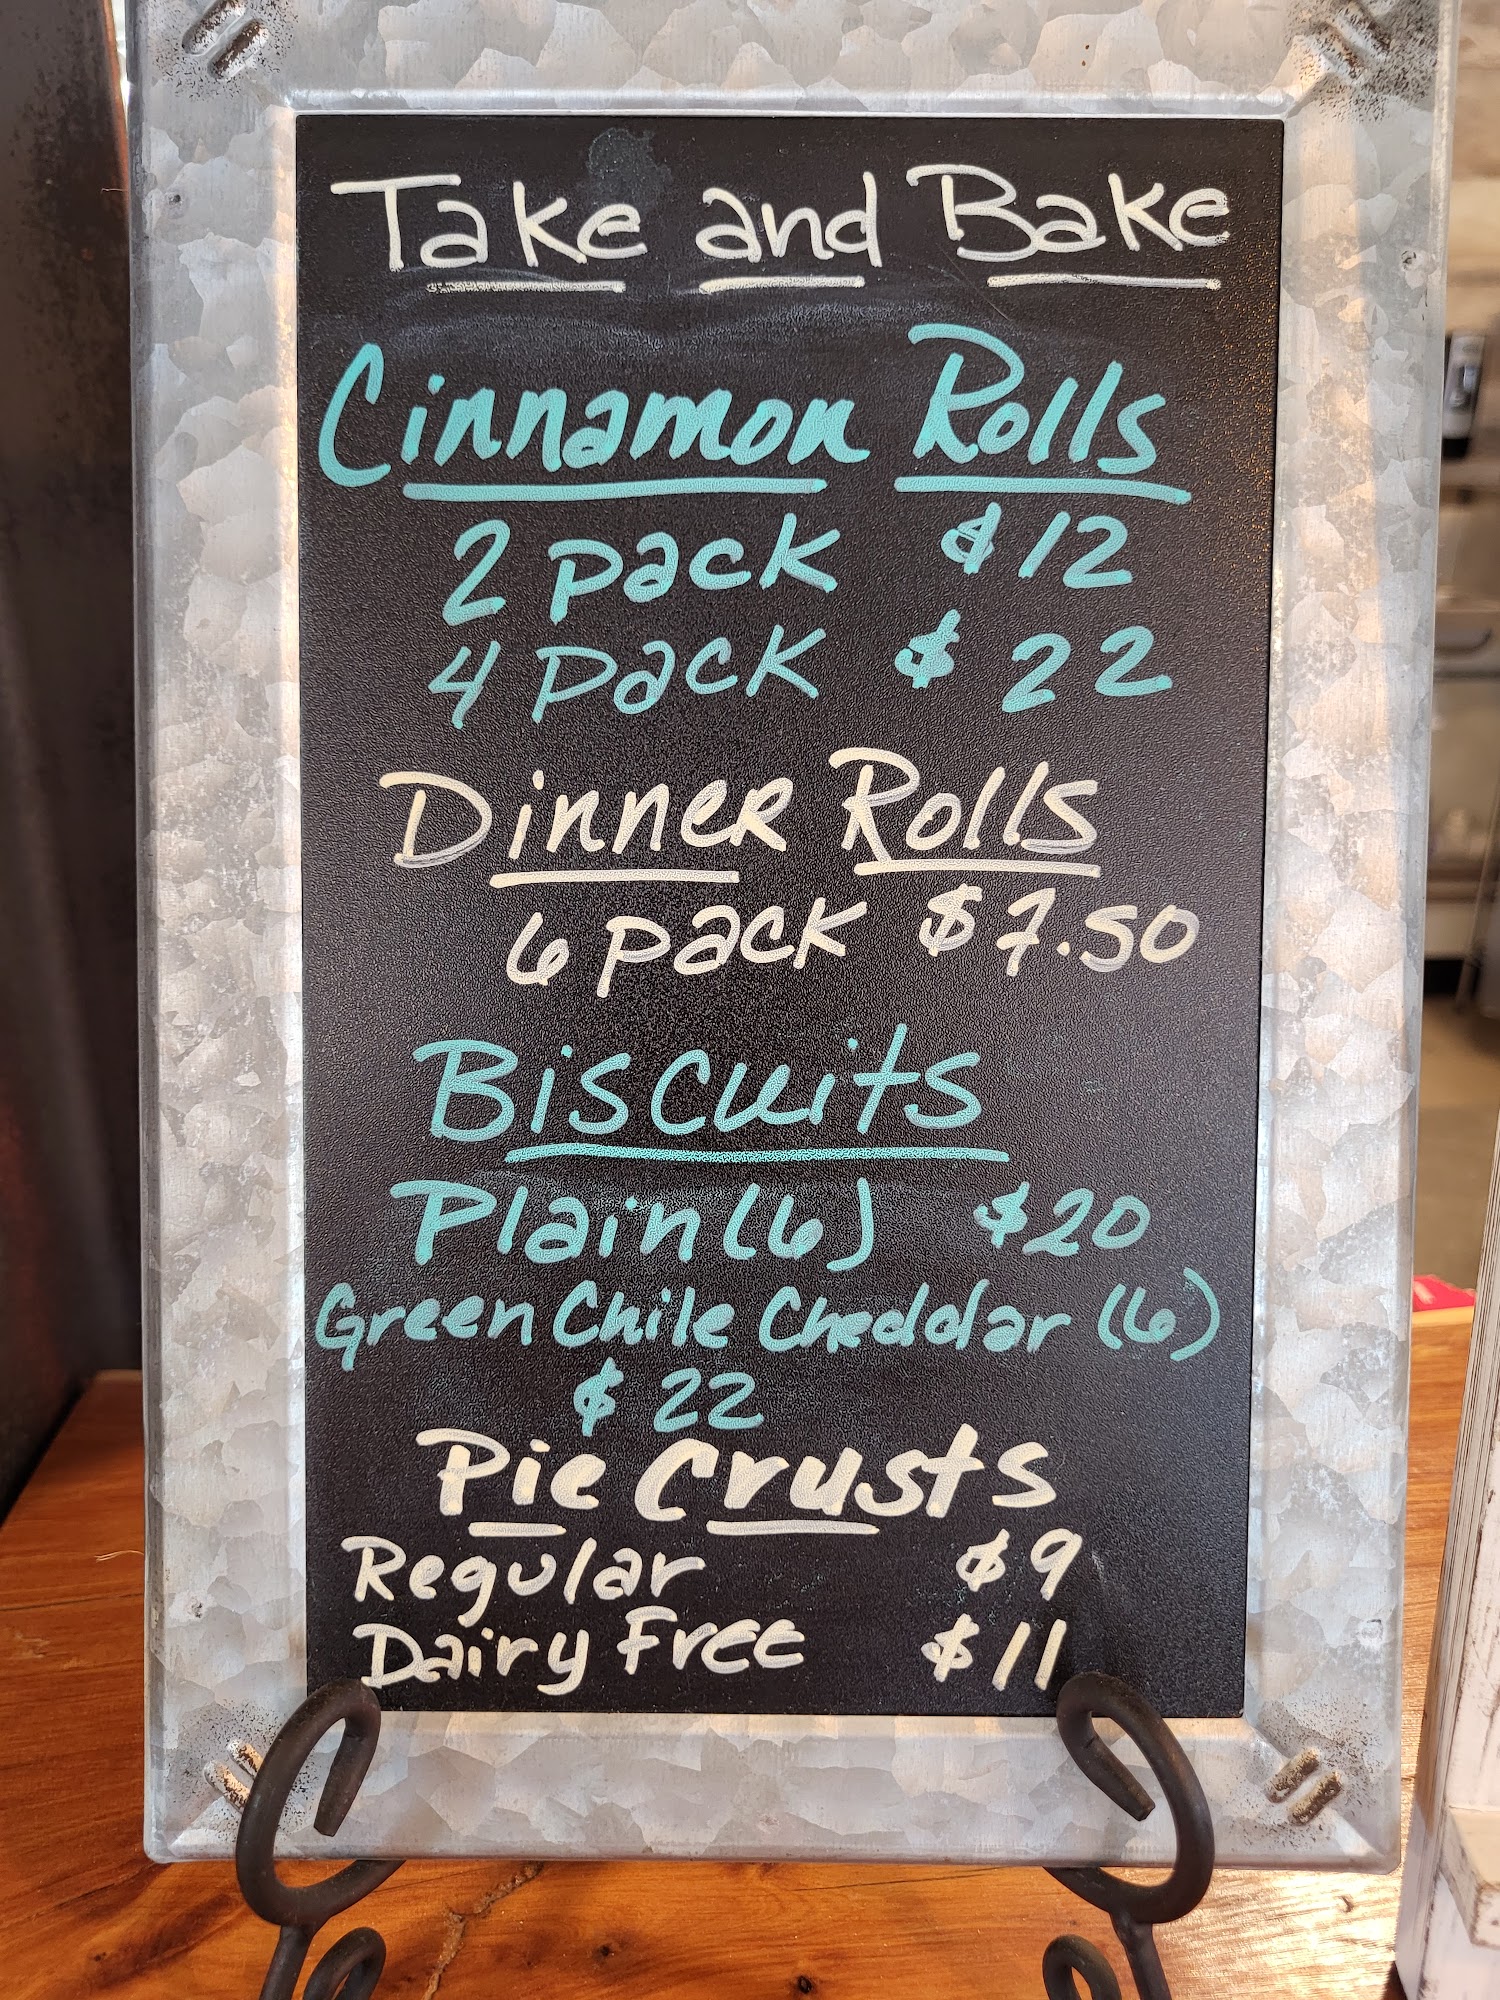 Take and Bake
Cinnamon Rolls
2 pack $12
4 pack $22
Dinner Rolls
6 pack $7.50
Biscuits
Plain (6) $20
Green Chile Cheddar (6)
$22
Pie Crusts
Regular $9
Dairy Free $11